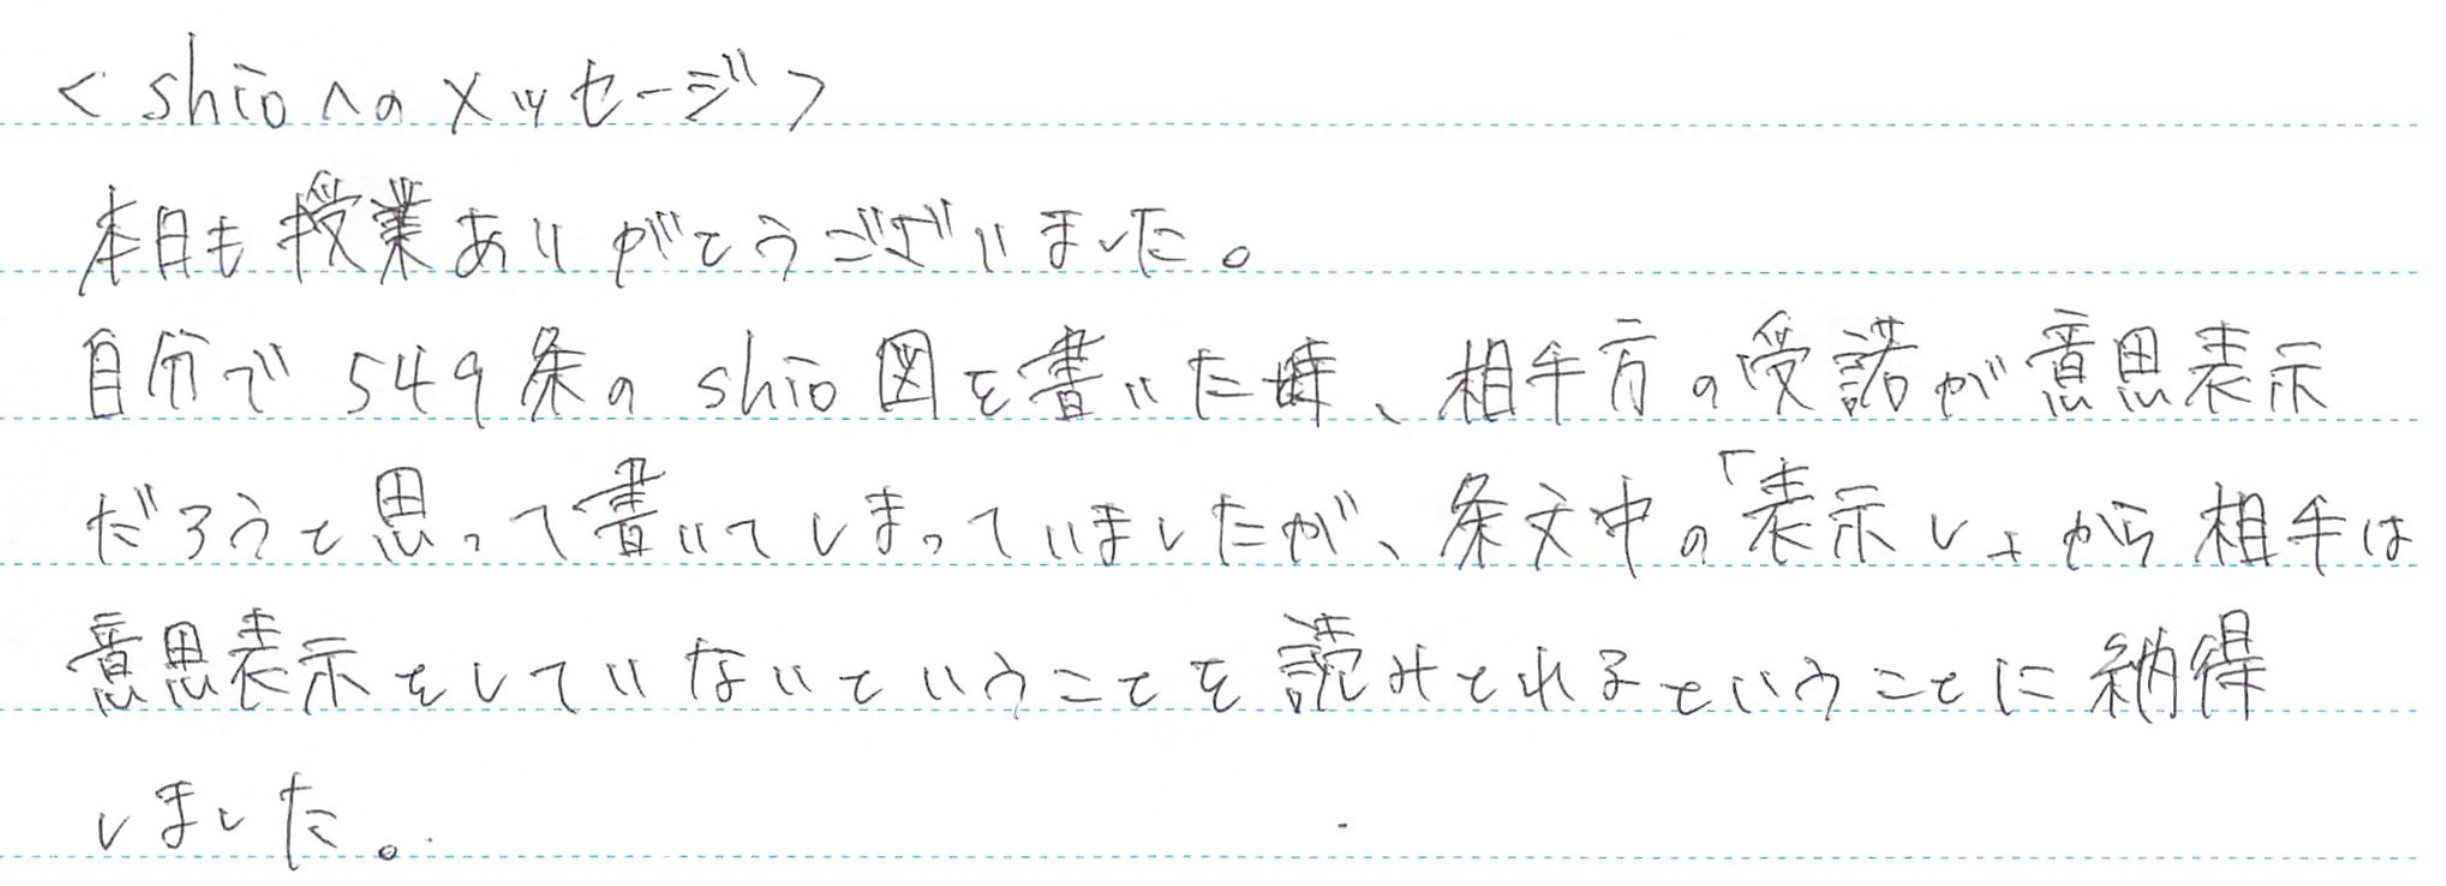 <shioへのメッセージ>
本日も授業ありがとうございました。
自分で549条のshio図を書いた時、相手方の受諾が意思表示
だろうと思って書いてしまっていましたが、条文中の「表示し」から相手は
意思表示をしていないということを読みとれるということに納得
しました。